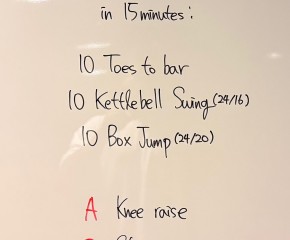 in 15 minutes:
10 Toes to bar
10 Kettlebell Swing (24/16)
10 Box Jump (24/20)
A Knee raise